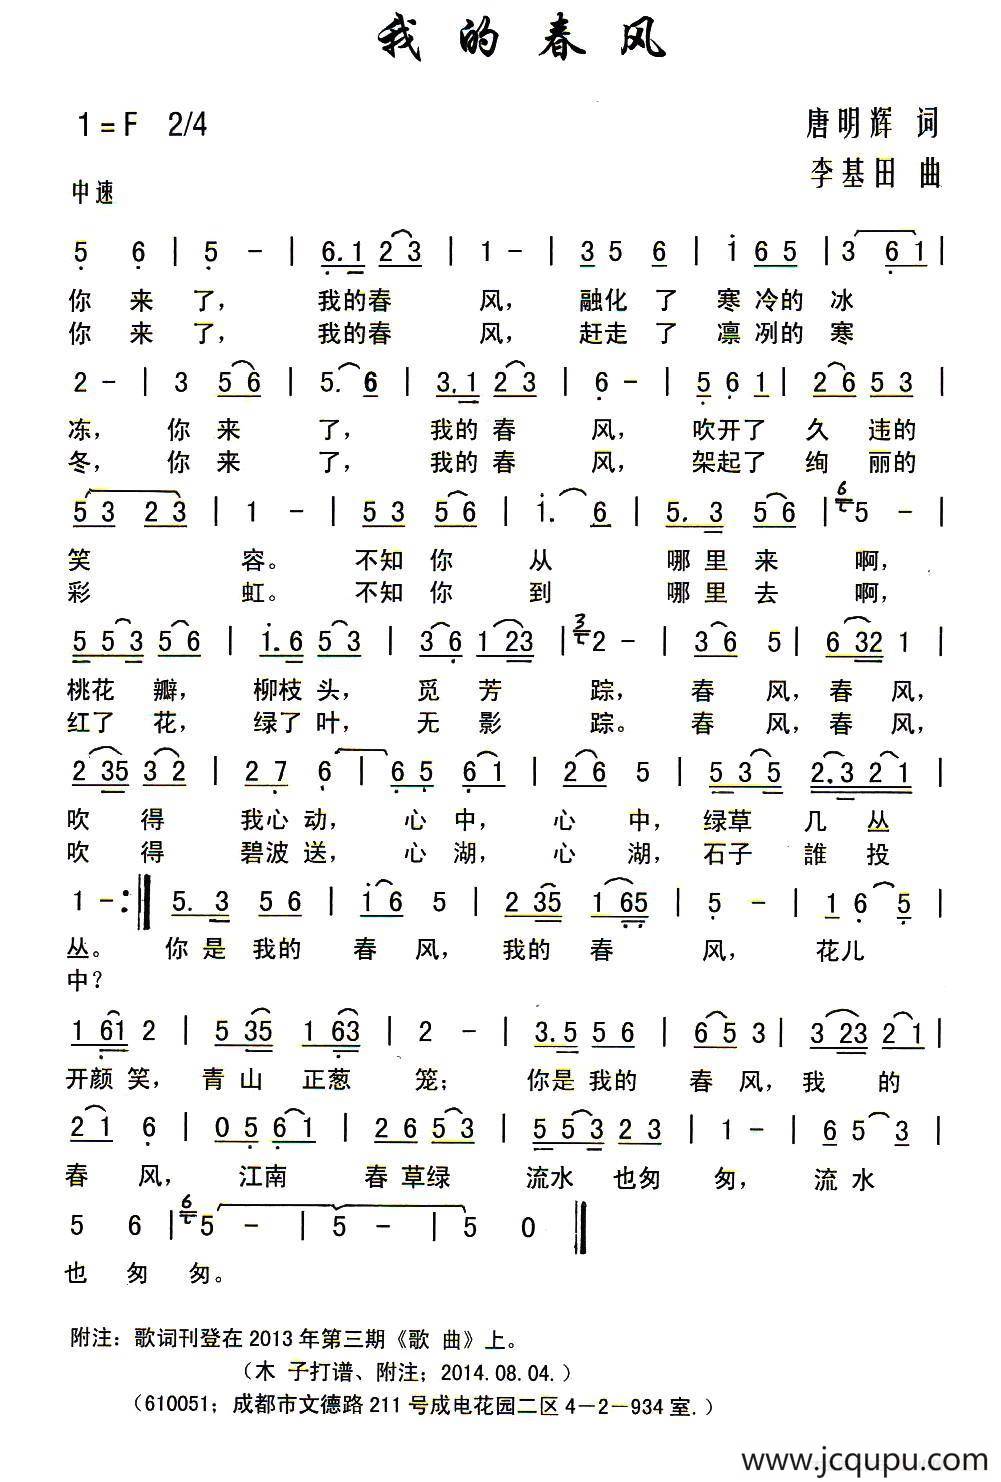 我的春风
1=F 2/4
唐明辉 词
李基田 曲
中速
5 6 | 5 - | 6.1 23 | 1 - | 35 6 | 1 65 | 3 61 |
你 来 了， 我的春 风， 融化 了 寒 冷的 冰
你 来 了， 我的春 风， 赶走 了 凛 冽的 寒
2 - | 3 56 | 5. 6 | 3.1 23 | 6 - | 5 6 1 | 26 53 |
冻， 你 来 了， 我的 春 风， 吹开了 久 违的
冬， 你 来 了， 我的 春 风， 架起了 绚 丽的
53 23 | 1 - | 53 56 | 1. 6 | 5.3 56 | 6 5 - |
笑 容。 不知 你 从 哪 里 来 啊，
彩 虹。 不知 你 到 哪 里 去 啊，
553 56 | 1.6 53 | 36 123 | 3 2 - | 36 5 | 632 1 |
桃花 瓣， 柳枝 头， 觅 芳 踪， 春 风，春 风，
红了 花， 绿了 叶， 无 影 踪。 春 风，春 风，
235 32 | 27 6 | 65 61 | 26 5 | 535 2.321 |
吹 得 我心 动， 心 中， 心 中， 绿草 几 丛
吹 得 碧波 送， 心 湖， 心 湖， 石子 誰 投
1 - :‖ 5.3 56 | 16 5 | 235 165 | 5 - | 1 6 5 |
丛。 你 是 我的 春 风， 我的 春 风， 花儿
中？
161 2 | 535 163 | 2 - | 3.5 56 | 65 3 | 323 21 |
开颜 笑， 青 山 正葱 笼； 你是 我的 春 风，我 的
21 6 | 05 61 | 26 53 | 553 23 | 1 - | 6 5 3 |
春 风， 江南 春 草绿 流水 也匆 匆， 流 水
5 6 | 6 5 - | 5 - | 5 0 ‖
也 匆 匆。
附注：歌词刊登在2013年第三期《歌 曲》上。
（木 子打谱、附注；2014.08.04.）
（610051；成都市文德路211号成电花园二区4－2－934室.）
www.jcqupu.com